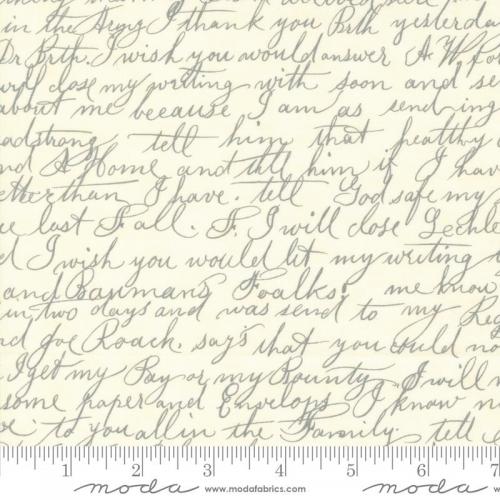 in the Army I thank you Brth yesterda
Dr. Brth. I wish you would answer A. W. Fo
will close my writing with soon and se
about me because I am as send-ing
adstrong tell him that pealthy
nd A Home and till him if I hav
etter than I have. tell God safe my
ue last Fall. F. I will close Lechle
d I wish you would lit my writing
and Bauman's Foalks, me know
in, two days and was send to my Reg
nd Joe Roach. says that you could no
I get my Pay or my Bounty I will
some paper and Envelops I know
to you all in the Family tell
1 2 3 4 5 6 7
moda www.modafabrics.com moda